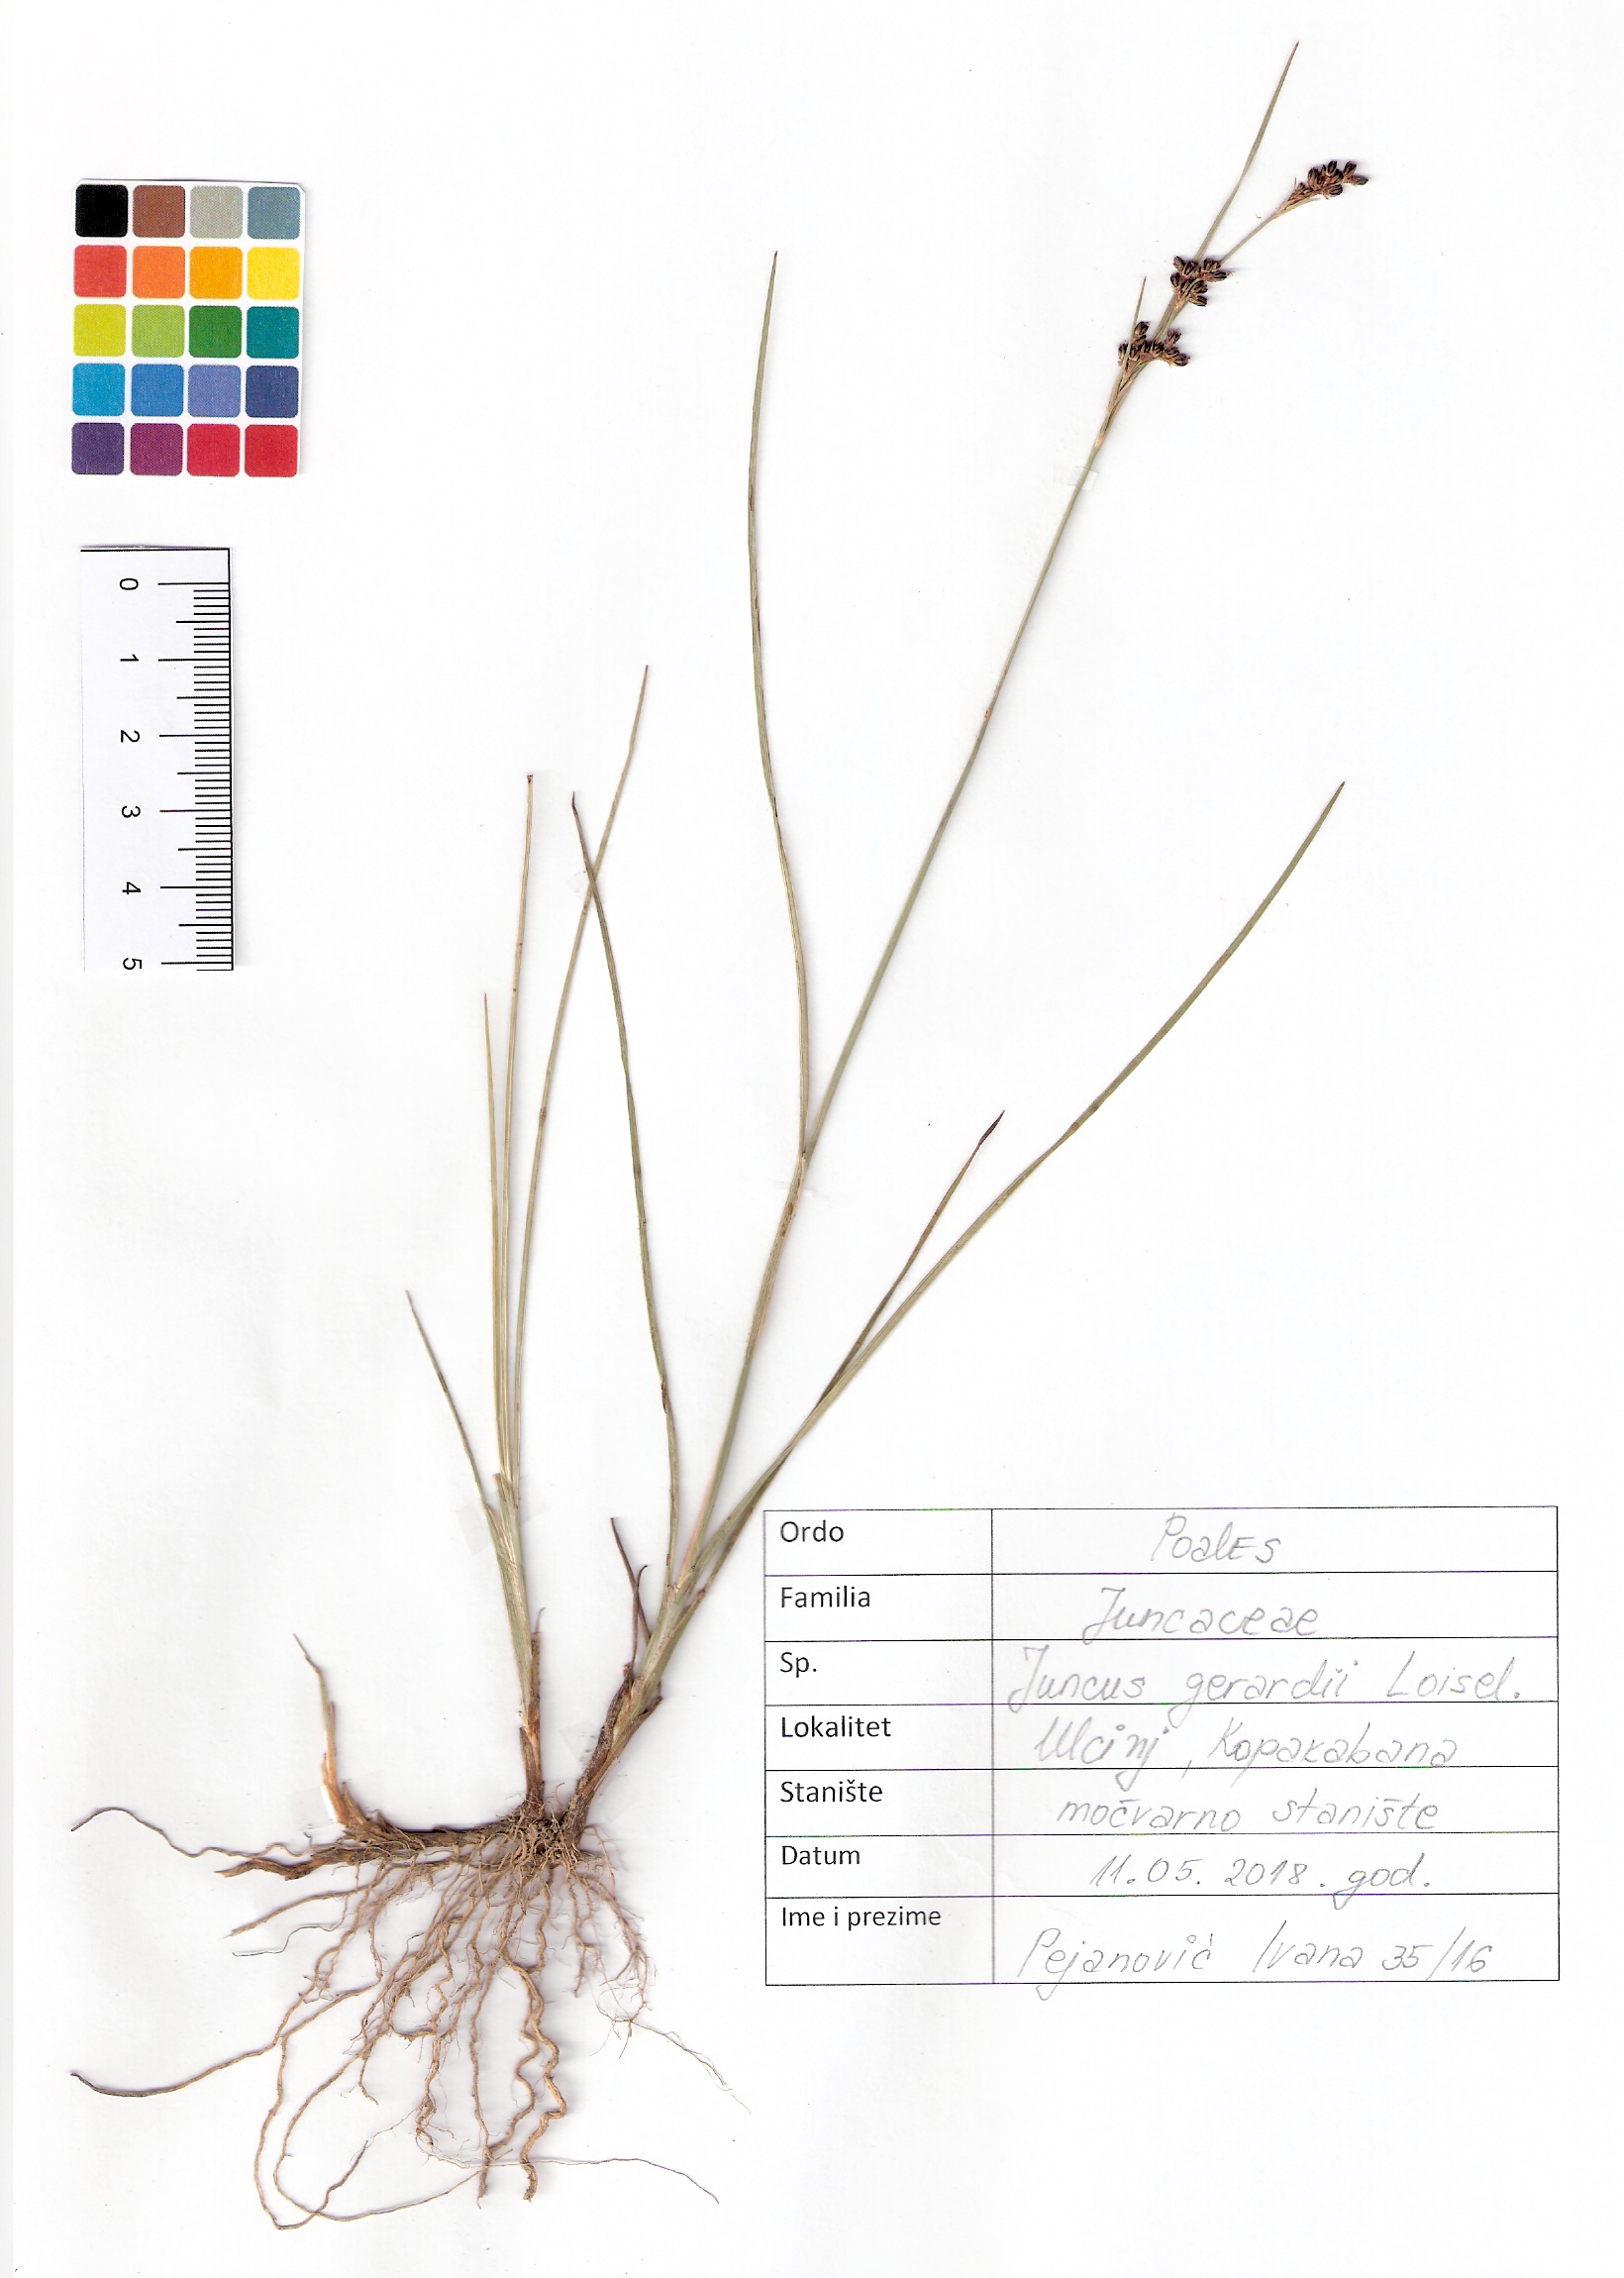 0
1
2
3
4
5
Ordo Poales
Familia Juncaceae
Sp. Juncus gerardii Loisel.
Lokalitet Ulcinj, Kopakabana
Stanište močvarno stanište
Datum 11.05.2018. god.
Ime i prezime Pejanović Ivana 35/16